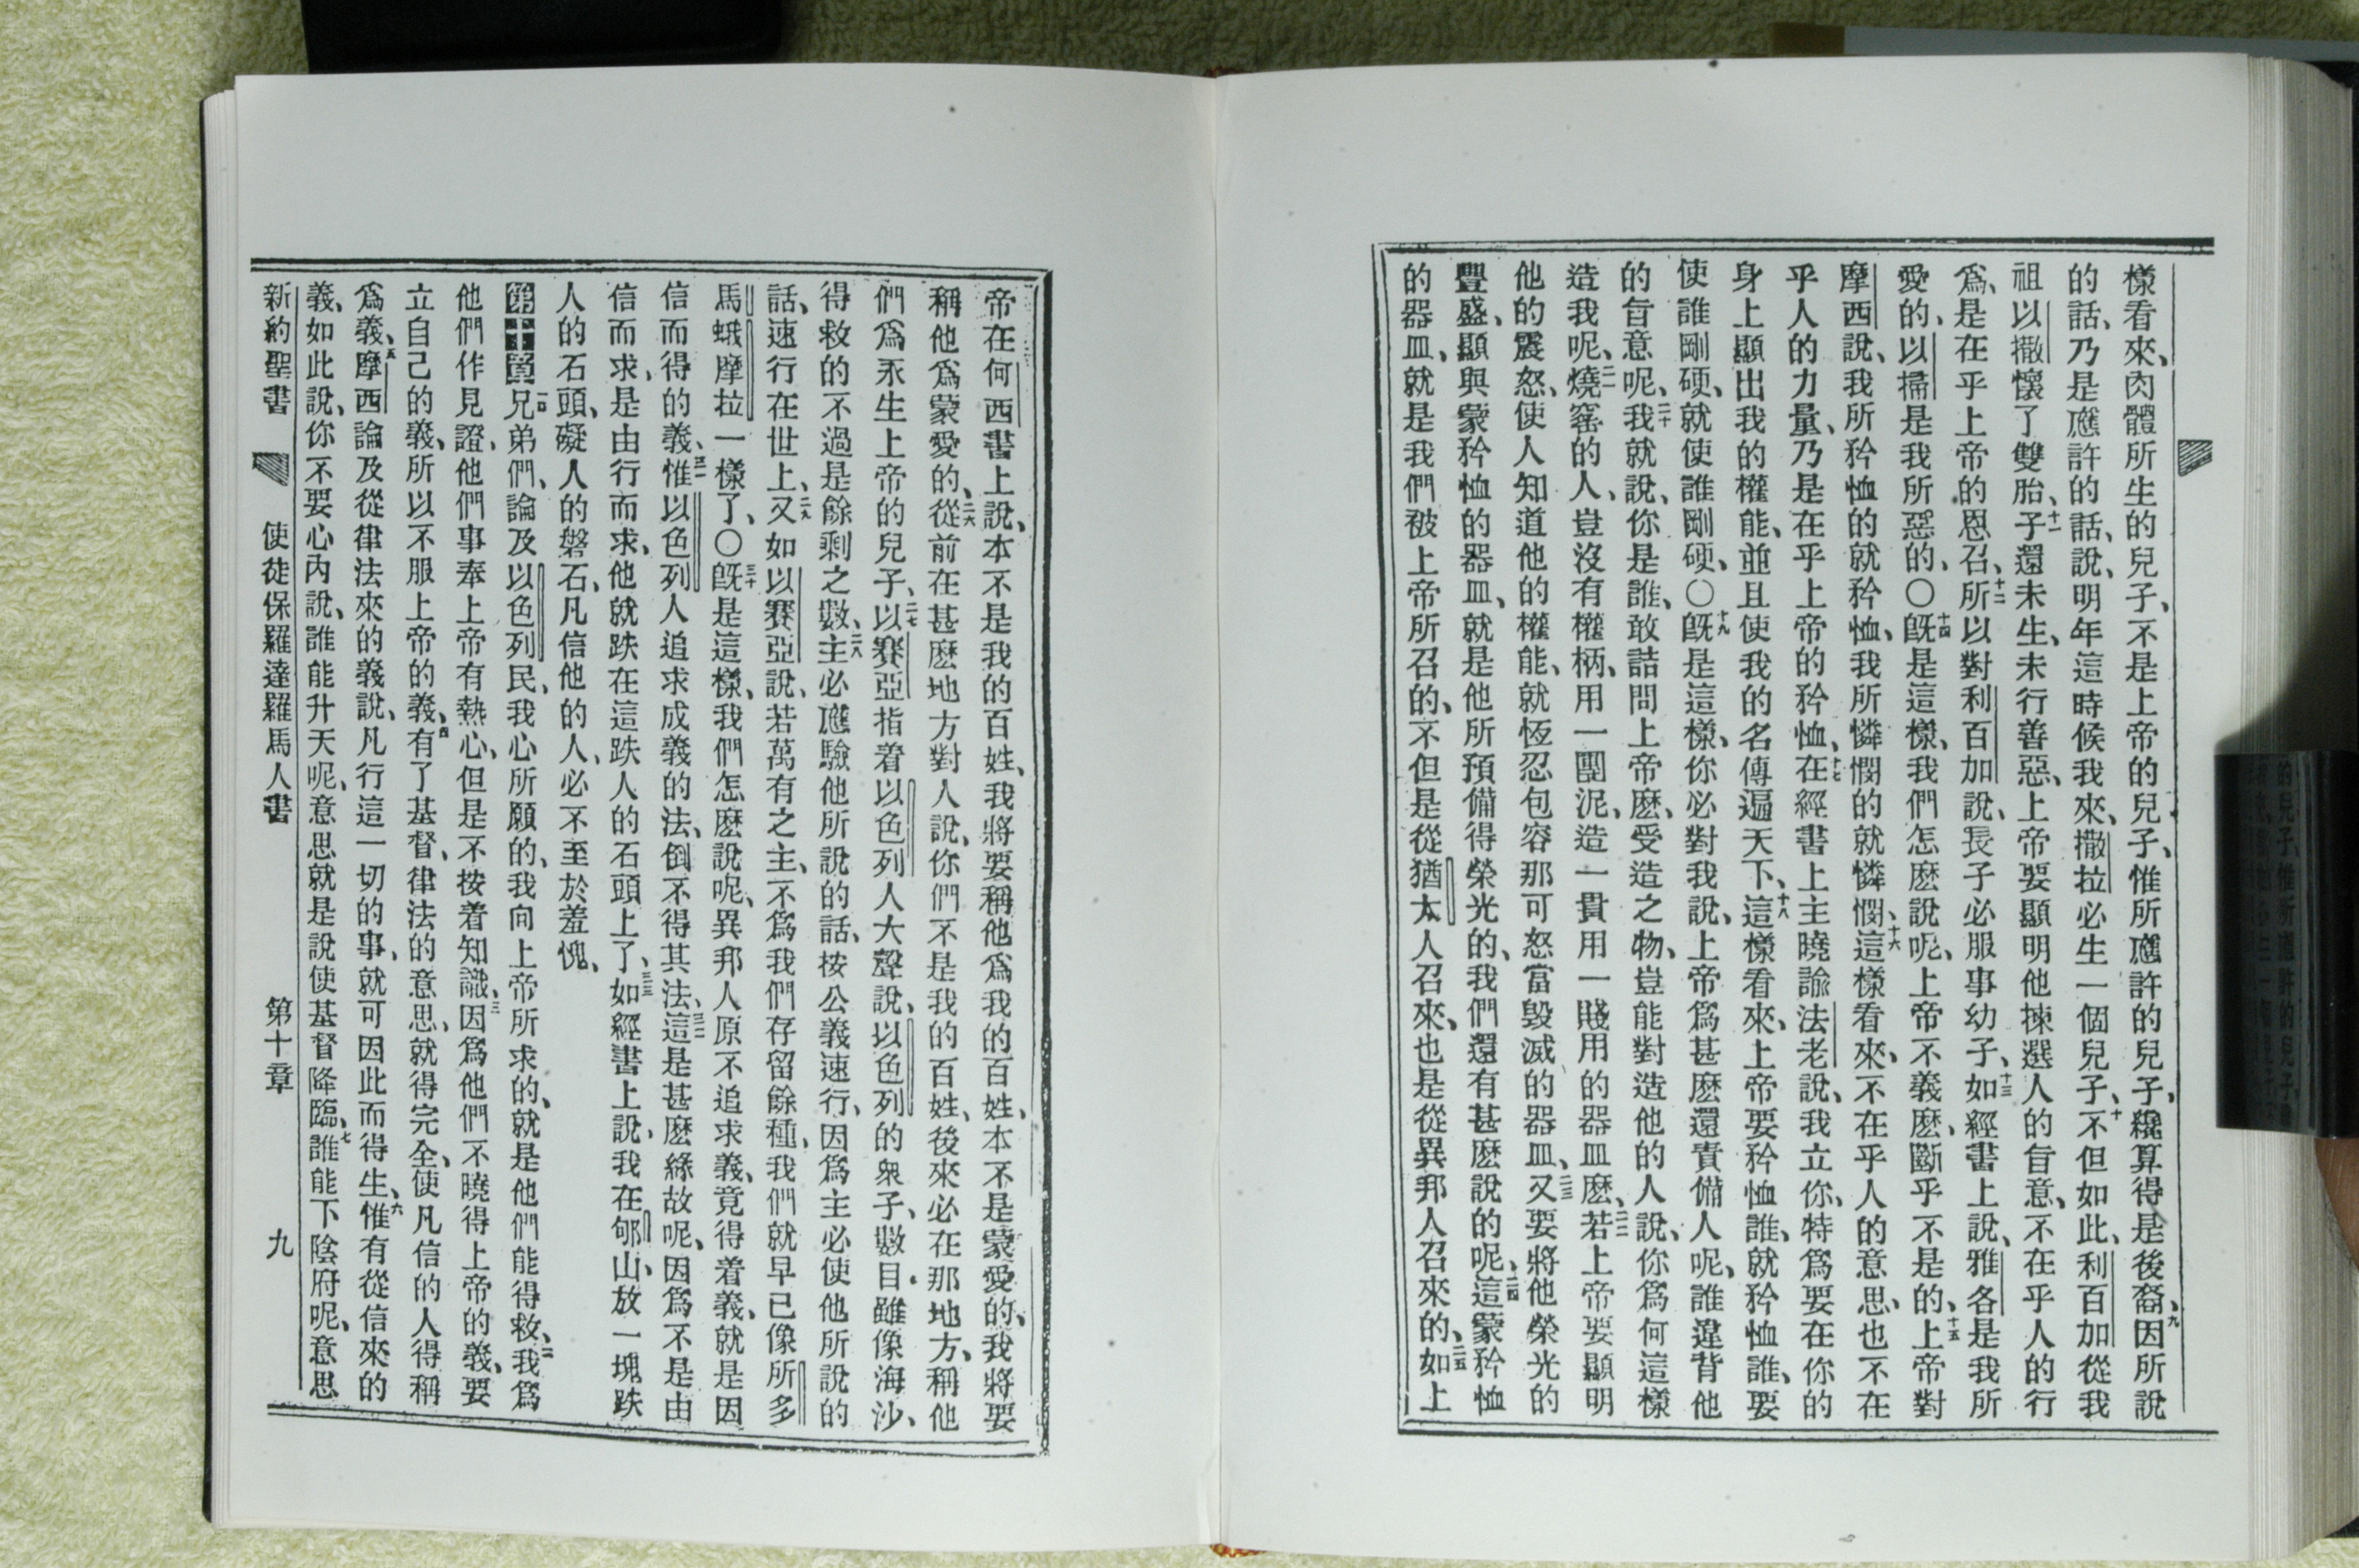 樣看來、肉體所生的兒子、不是上帝的兒子、惟所應許的兒子、纔算得是後裔、九因所說
的話、乃是應許的話、說、明年這時候我來、撒拉必生一個兒子、十不但如此、利百加從我
祖以撒懷了雙胎、十一子還未生、未行善惡、上帝要顯明他揀選人的旨意、不在乎人的行
爲、是在乎上帝的恩召、十二所以對利百加說、長子必服事幼子、十三如經書上說、雅各是我所
愛的、以掃是我所惡的、○十四旣是這樣、我們怎麽說呢、上帝不義麽、斷乎不是的、十五上帝對
摩西說、我所矜恤的就矜恤、我所憐憫的就憐憫、十六這樣看來、不在乎人的意思、也不在
乎人的力量、乃是在乎上帝的矜恤、十七在經書上主曉諭法老說、我立你、特爲要在你的
身上顯出我的權能、並且使我的名傳遍天下、十八這樣看來、上帝要矜恤誰、就矜恤誰、要
使誰剛硬、就使誰剛硬、○十九旣是這樣、你必對我說、上帝爲甚麽還責備人呢、誰違背他
的旨意呢、二十我就說、你是誰、敢詰問上帝麽、受造之物、豈能對造他的人說、你爲何這樣
造我呢、二一燒窰的人、豈沒有權柄、用一團泥、造一貴用一賤用的器皿麽、二二若上帝要顯明
他的震怒、使人知道他的權能、就恆忍包容那可怒富毀滅的器皿、二三又要將他榮光的
豐盛、顯與蒙矜恤的器皿、就是他所預備得榮光的、我們還有甚麽說的呢、二四這蒙矜恤
的器皿、就是我們被上帝所召的、不但是從猶太人召來、也是從異邦人召來的、二五如上
帝在何西書上說、本不是我的百姓、我將要稱他爲我的百姓、本不是蒙愛的、我將要
稱他爲蒙愛的、二六從前在甚麽地方對人說、你們不是我的百姓、後來必在那地方、稱他
們爲永生上帝的兒子、二七以賽亞指着以色列人大聲說、以色列的衆子、數目雖像海沙、
得救的不過是餘剩之數、二八主必應驗他所說的話、按公義速行、因爲主必使他所說的
話、速行在世上、二九又如以賽亞說、若萬有之主、不爲我們存留餘種、我們就早已像所多
馬蛾摩拉一樣了、○三十旣是這樣、我們怎麽說呢、異邦人原不追求義、竟得着義、就是因
信而得的義、三一惟以色列人追求成義的法、倒不得其法、三二這是甚麽緣故呢、因爲不是由
信而求、是由行而求、他就跌在這跌人的石頭上了、三三如經書上說、我在郇山、放一塊跌
人的石頭、礙人的磐石、凡信他的人、必不至於羞愧、
第十章一兄弟們、論及以色列民、我心所願的、我向上帝所求的、就是他們能得救、二我爲
他們作見證、他們事奉上帝有熱心、但是不按着知識、三因爲他們不曉得上帝的義、要
立自己的義、所以不服上帝的義、四有了基督、律法的意思、就得完全、使凡信的人得稱
爲義、五摩西論及從律法來的義說、凡行這一切的事、就可因此而得生、六惟有從信來的
義、如此說、你不要心內說、誰能升天呢、意思就是說使基督降臨、七誰能下陰府呢、意思
新約聖書 使徒保羅達羅馬人書 第十章 九